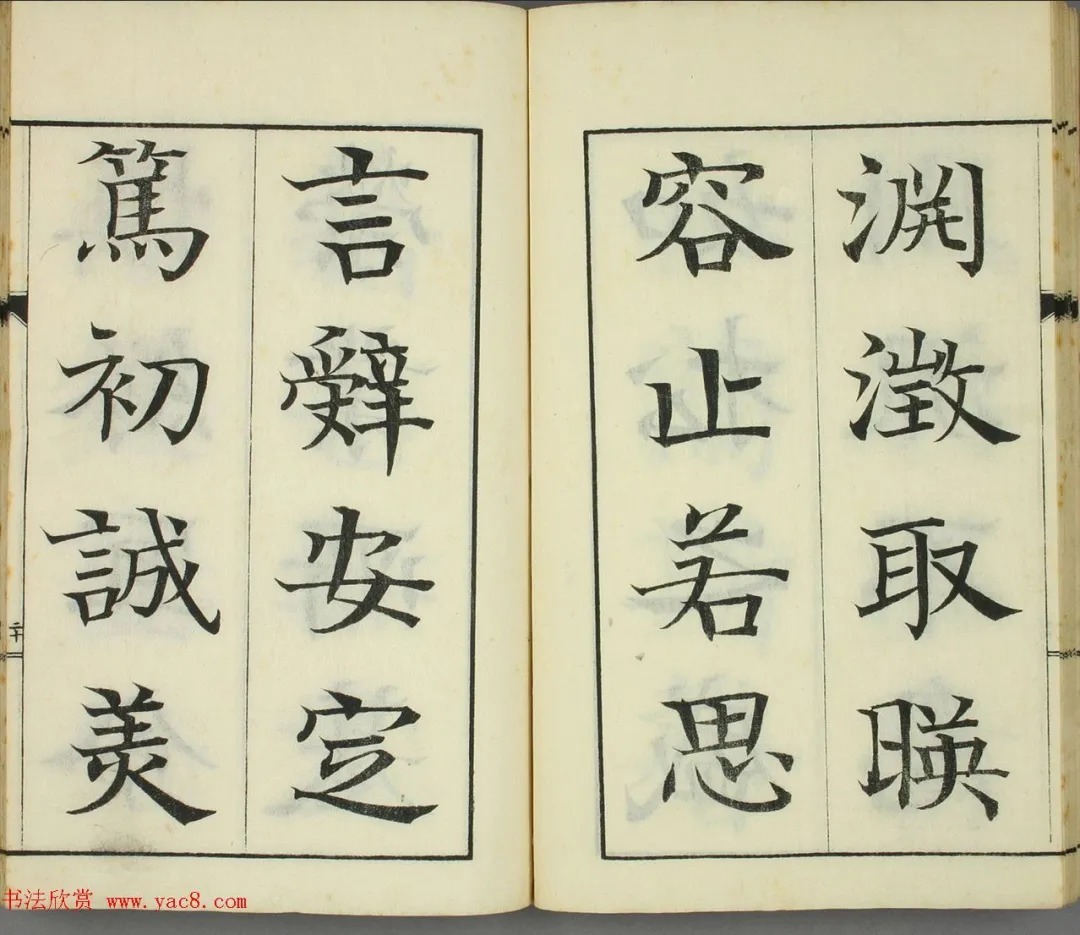 淵澂取暎
容止若思
言辤安定
篤初誠美
二十
书法欣赏 www.yac8.com